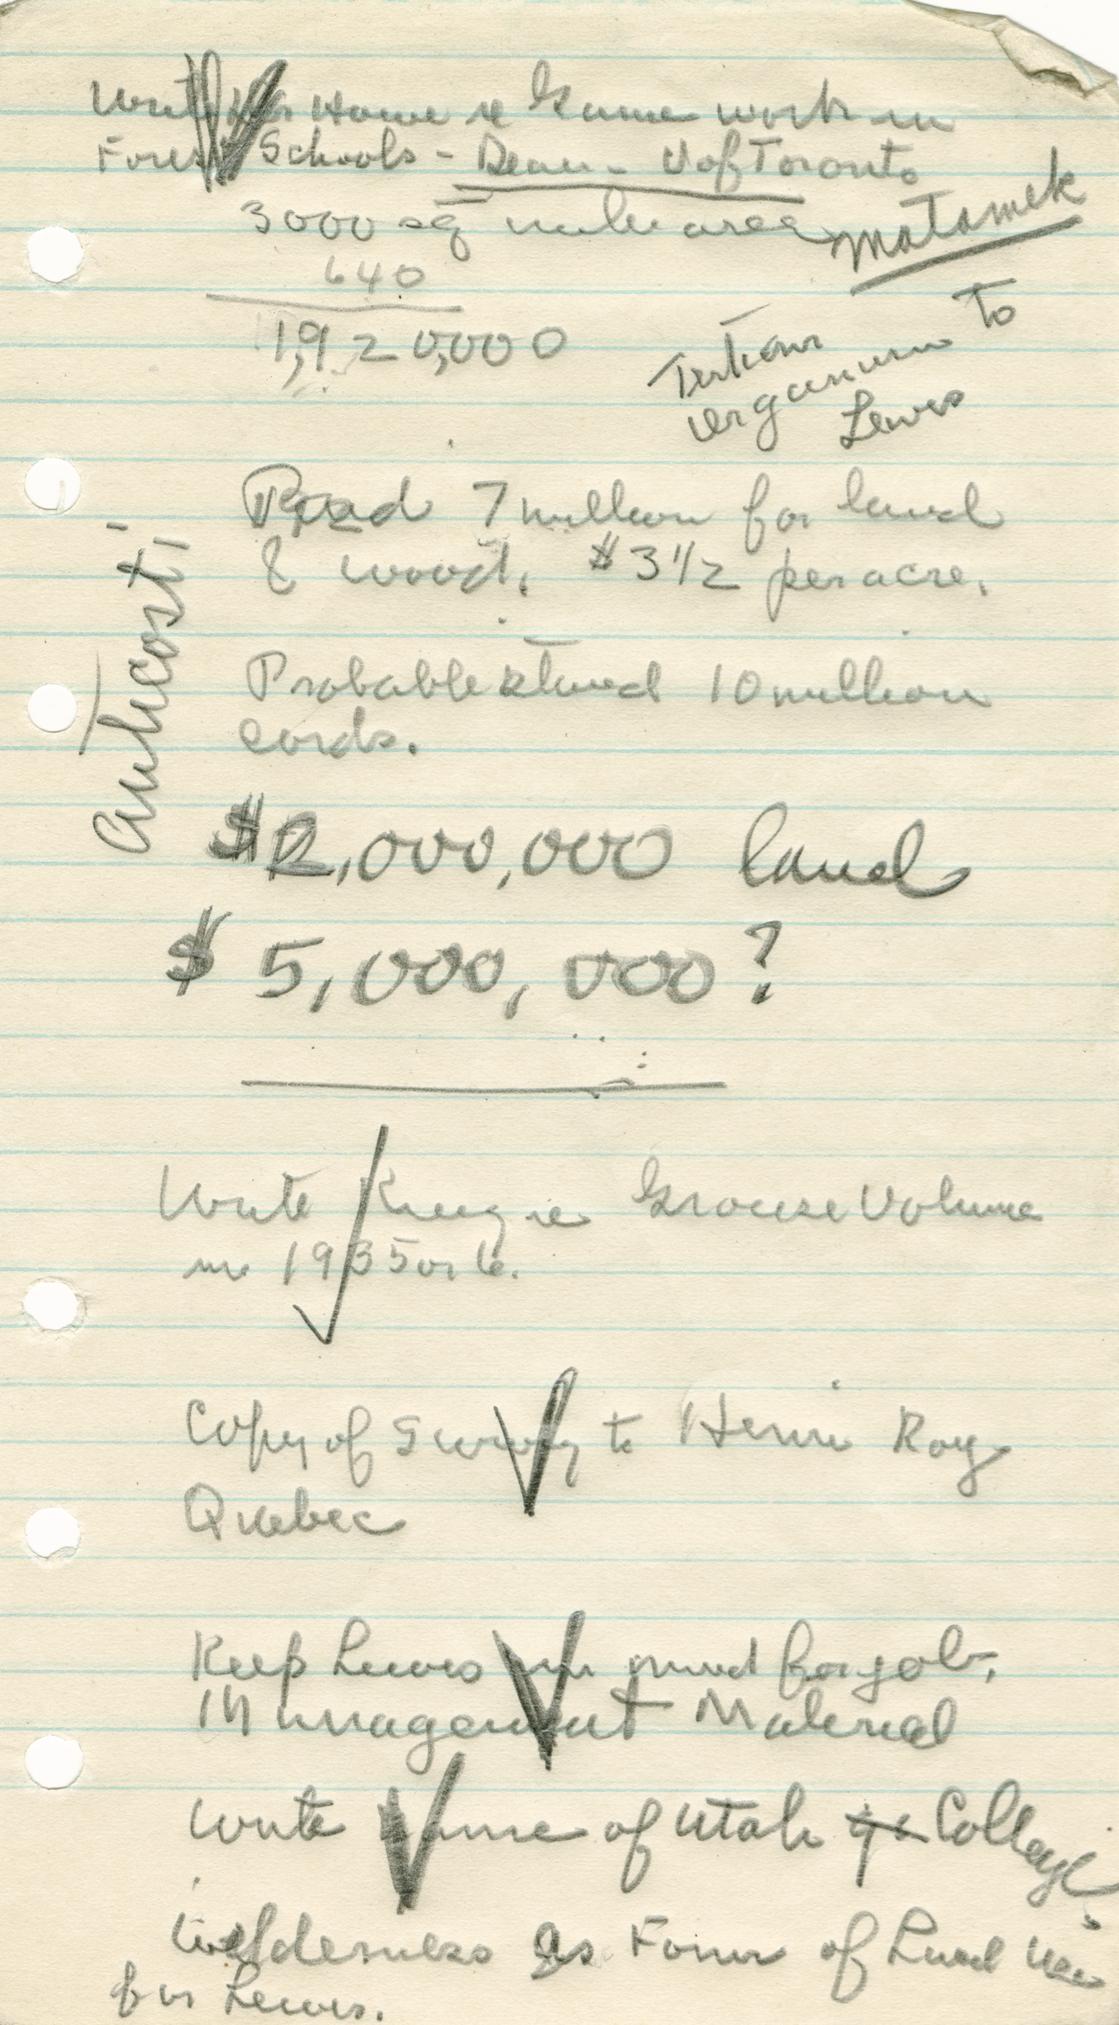 Write Howe re Game work in
Forest Schools - Dean - U of Toronto
3000 sq mile area
Matamek
640
1,920,000
Tertians
organism to
Lewis
Anticosti
Paid 7 million for land
& wood. $3 1/2 per acre.
Probable stand 10 million
cords.
$2,000,000 land
$5,000,000?
Write King re Grouse Volume
in 1935 or 6.
Copy of Survey to Henri Roy
Quebec
Keep Lewis in mind for job.
Management Material
Write of Utah College
Wilderness as Form of Land Use
for Lewis.